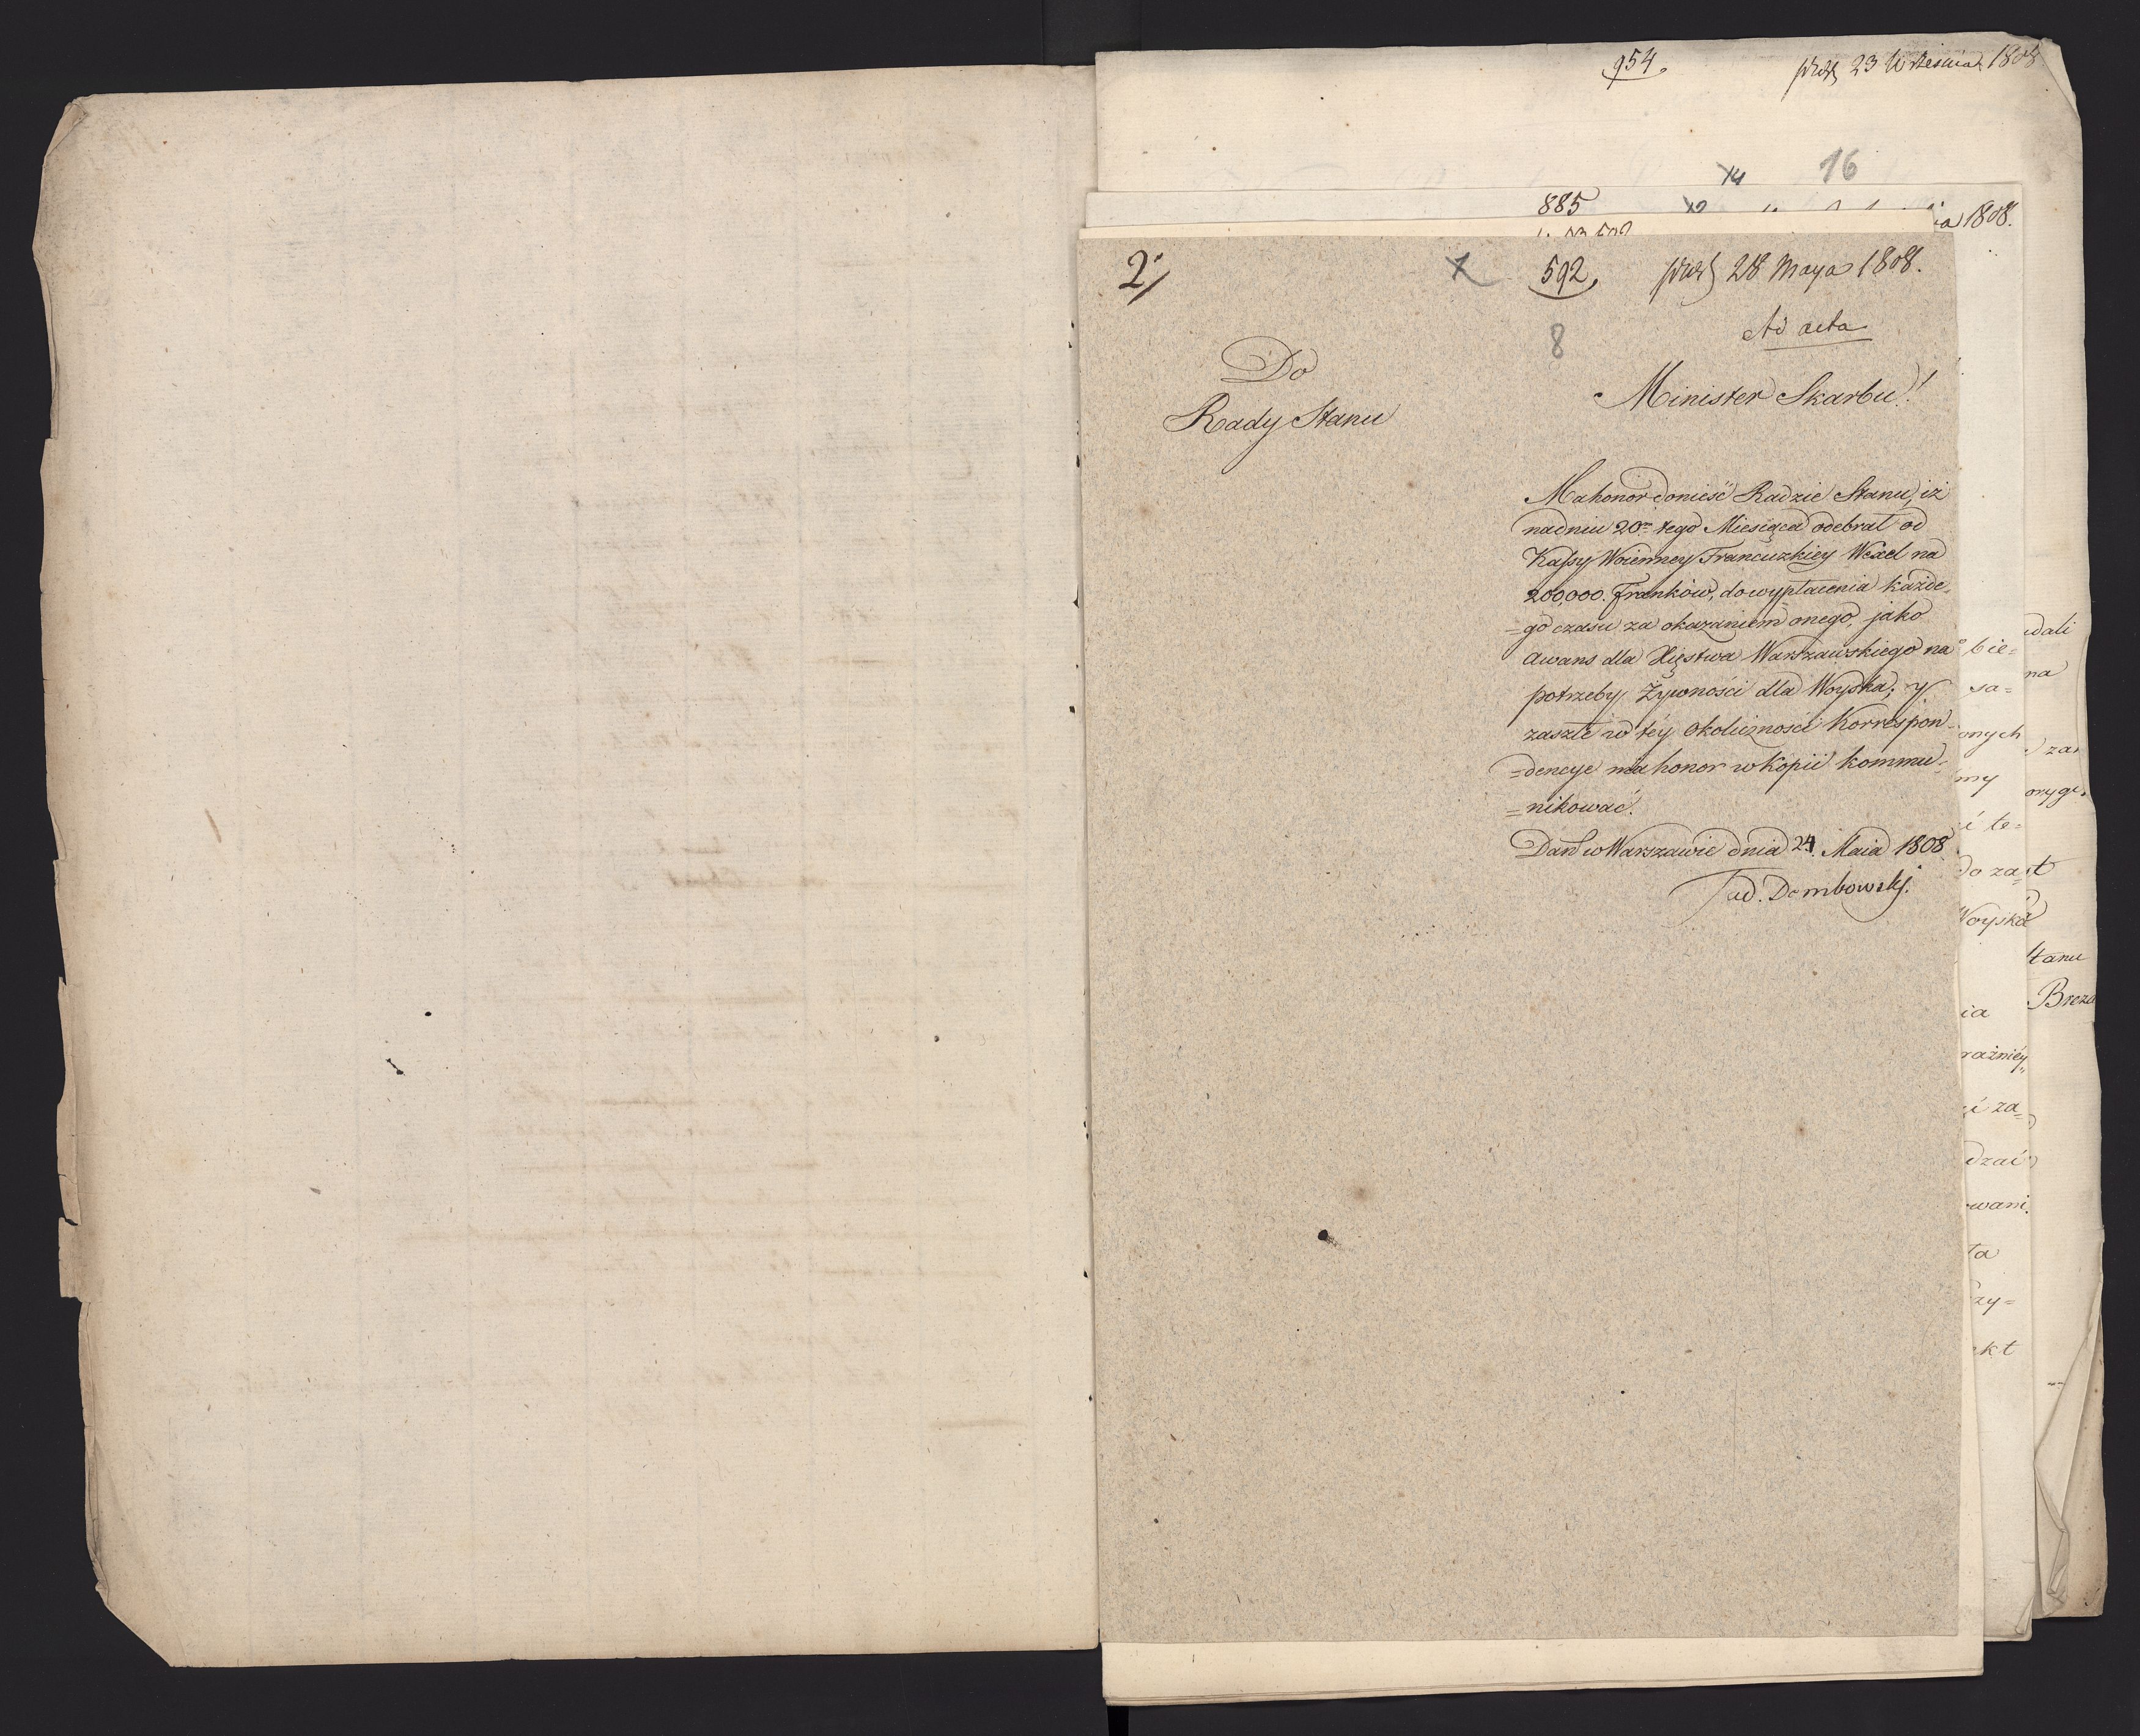 954
23 Września 1808
16
14
885
12
ia 1808.
2
592 28 Maya 1808.
8
Ad acta
Do
Rady Stanu
Minister Skarbu!
Ma honor donieść Radzie Stanu, iż
na dniu 20m tego Miesiąca odebrał od
Kassy Woienney Francuzkiey Wexel na
200,000. Franków, do wypłacenia każde=
=go czasu za okazaniem onego, jako
Awans dla Xięstwa Warszawskiego na
potrzeby Żywności dla Woyska; y
zaszłe w téy okoliczności Korrespon=
=dencye ma honor w Kopii kommu=
=nikować.
Dan w Warszawie dnia 24. Maia 1808
Tad. Dembowski.
bie=
sa=
onych
my
i te=
do za=
Woyska
ia
raźniéy
i za=
dzać
wani
ta
zy=
kt
dali
na
za
oryg
st
Stanu
Breza